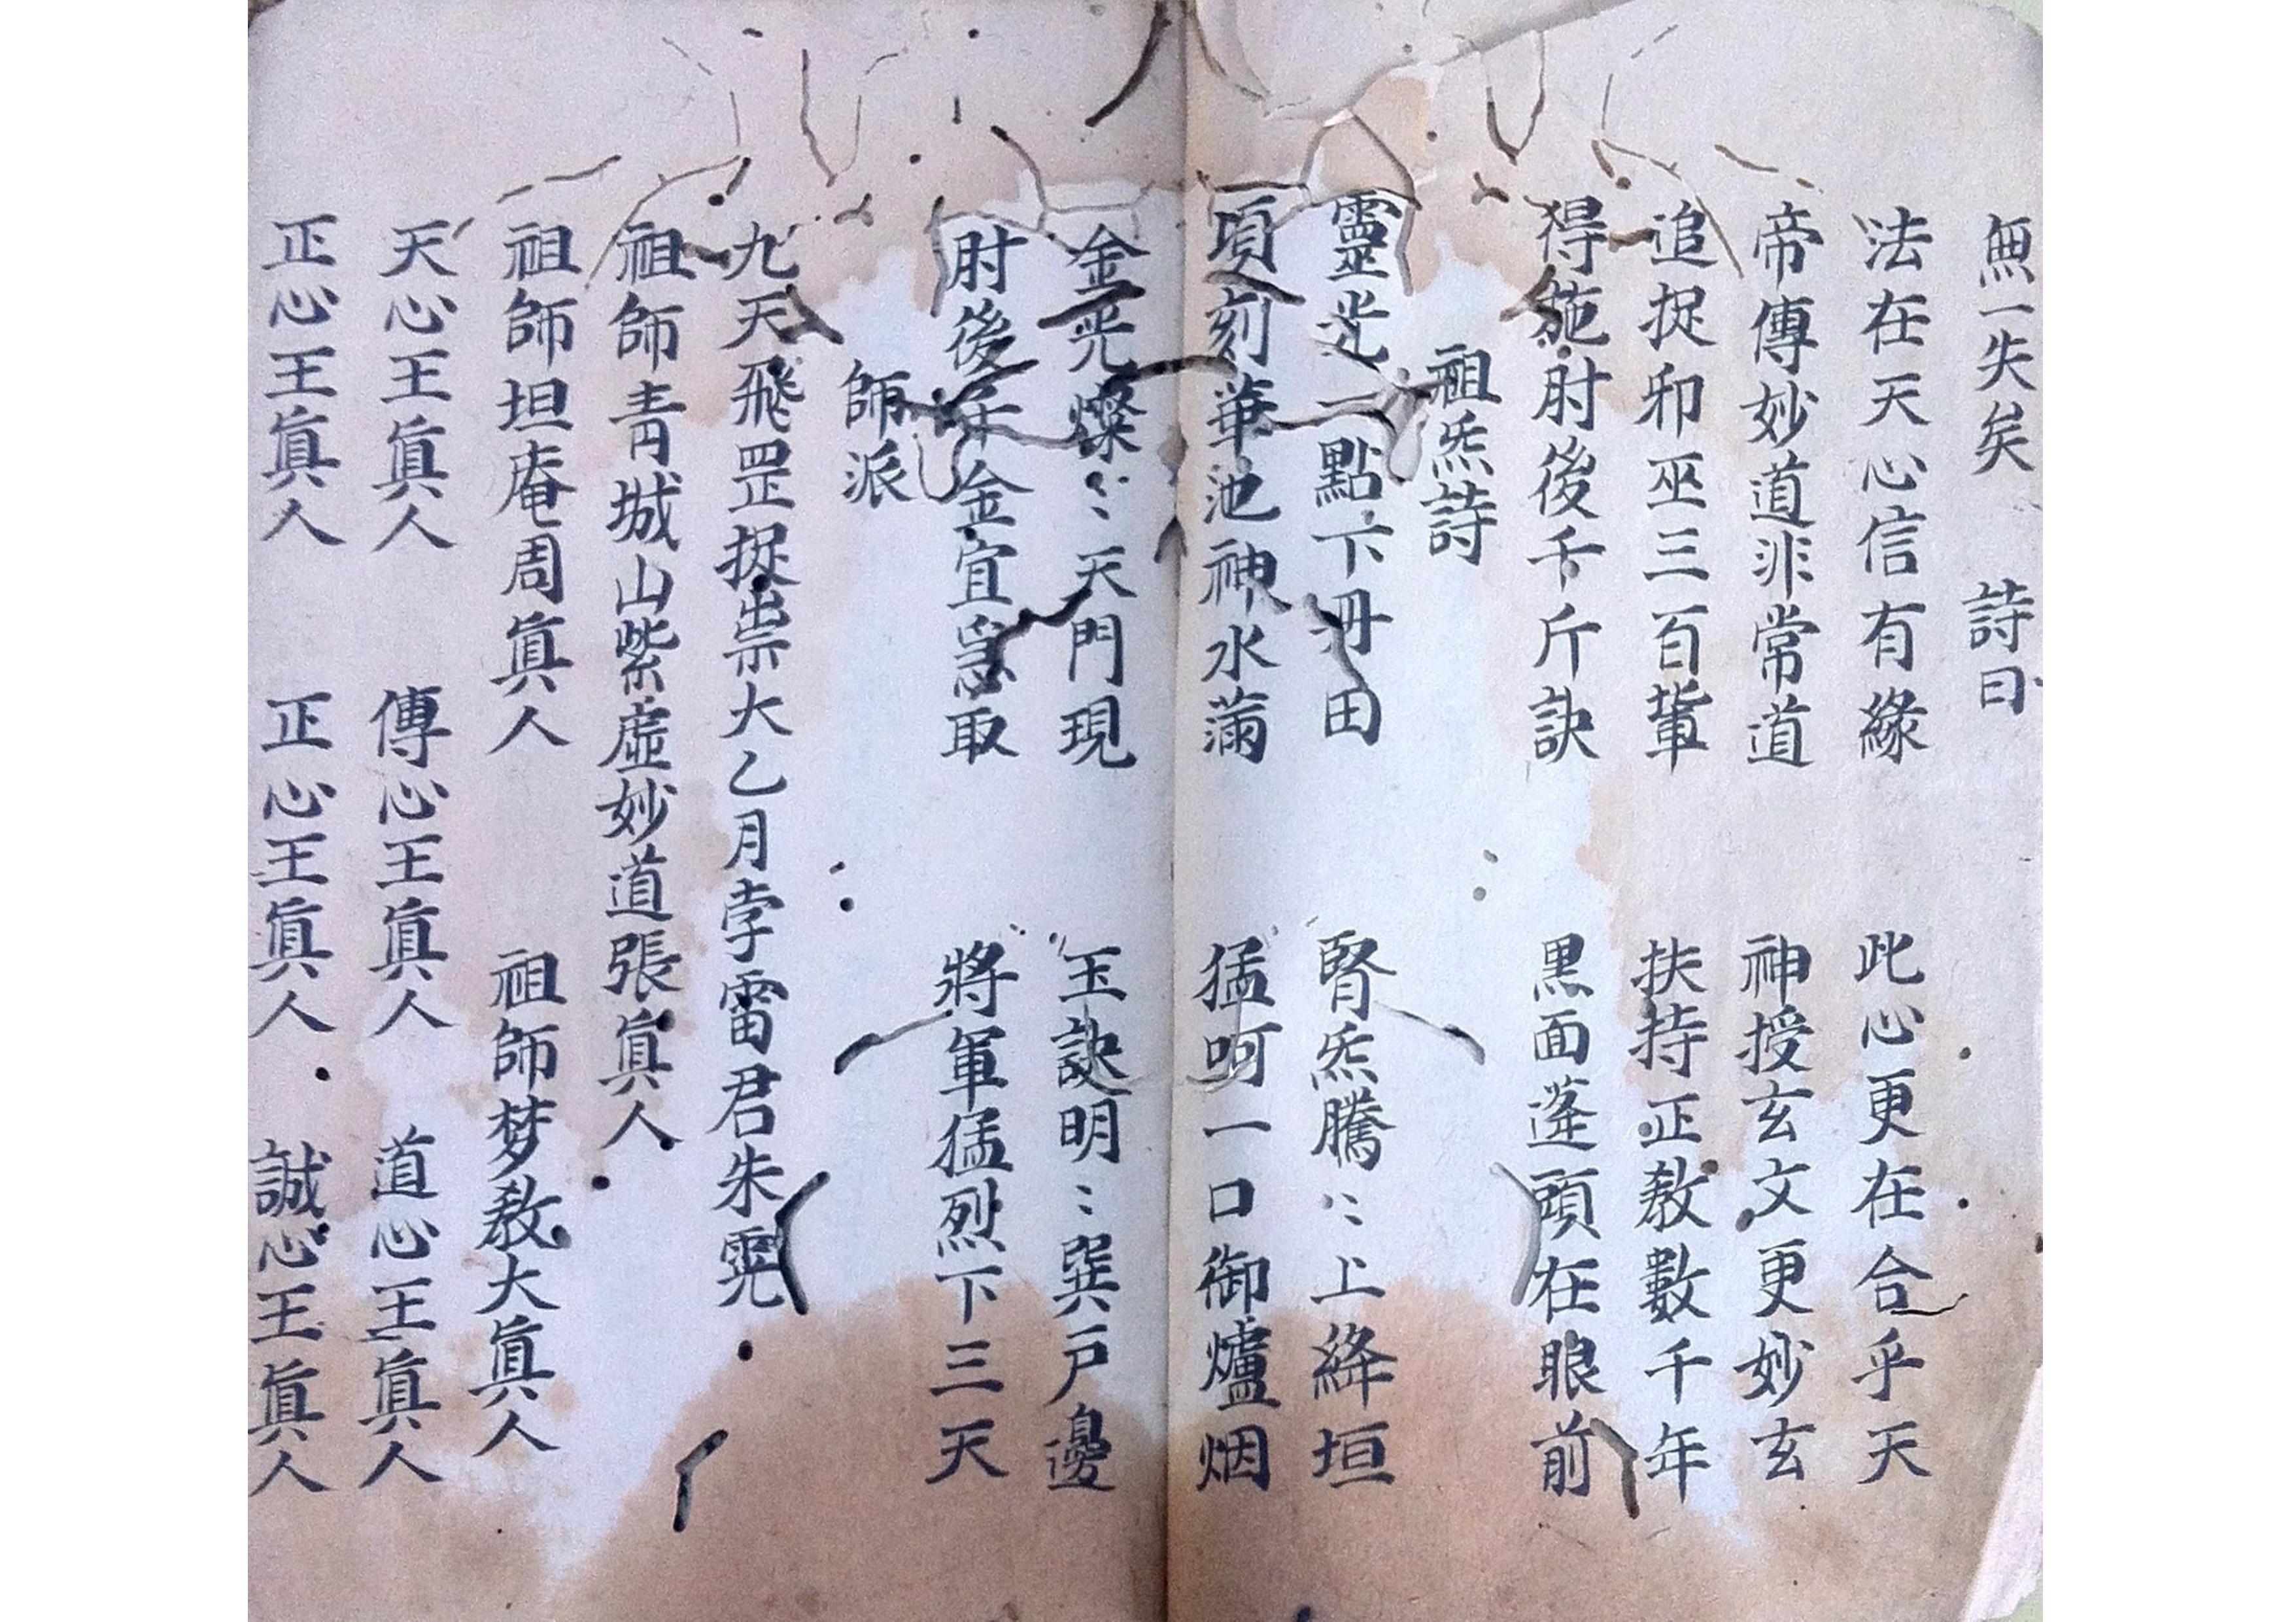 無一失矣 詩曰
法在天心信有緣 此心更在合乎天
帝傳妙道非常道 神授玄文更妙玄
追捉卯巫三百輩 扶持正教數千年
得施肘後千斤訣 黑面蓬頭在眼前
祖炁詩
靈光一點下丹田 腎炁騰〻上絳垣
頃刻華池神水滿 猛呵一口御爐烟
金光燦〻天門現 玉訣明〻巽戶邊
肘後千金宜急取 將軍猛烈下三天
師派
九天飛罡捉祟大乙月孛雷君朱䨚
祖師青城山紫虛妙道張真人
祖師坦庵周真人 祖師梦教大真人
天心王真人 傳心王真人 道心王真人
正心王真人 正心王真人 誠心王真人